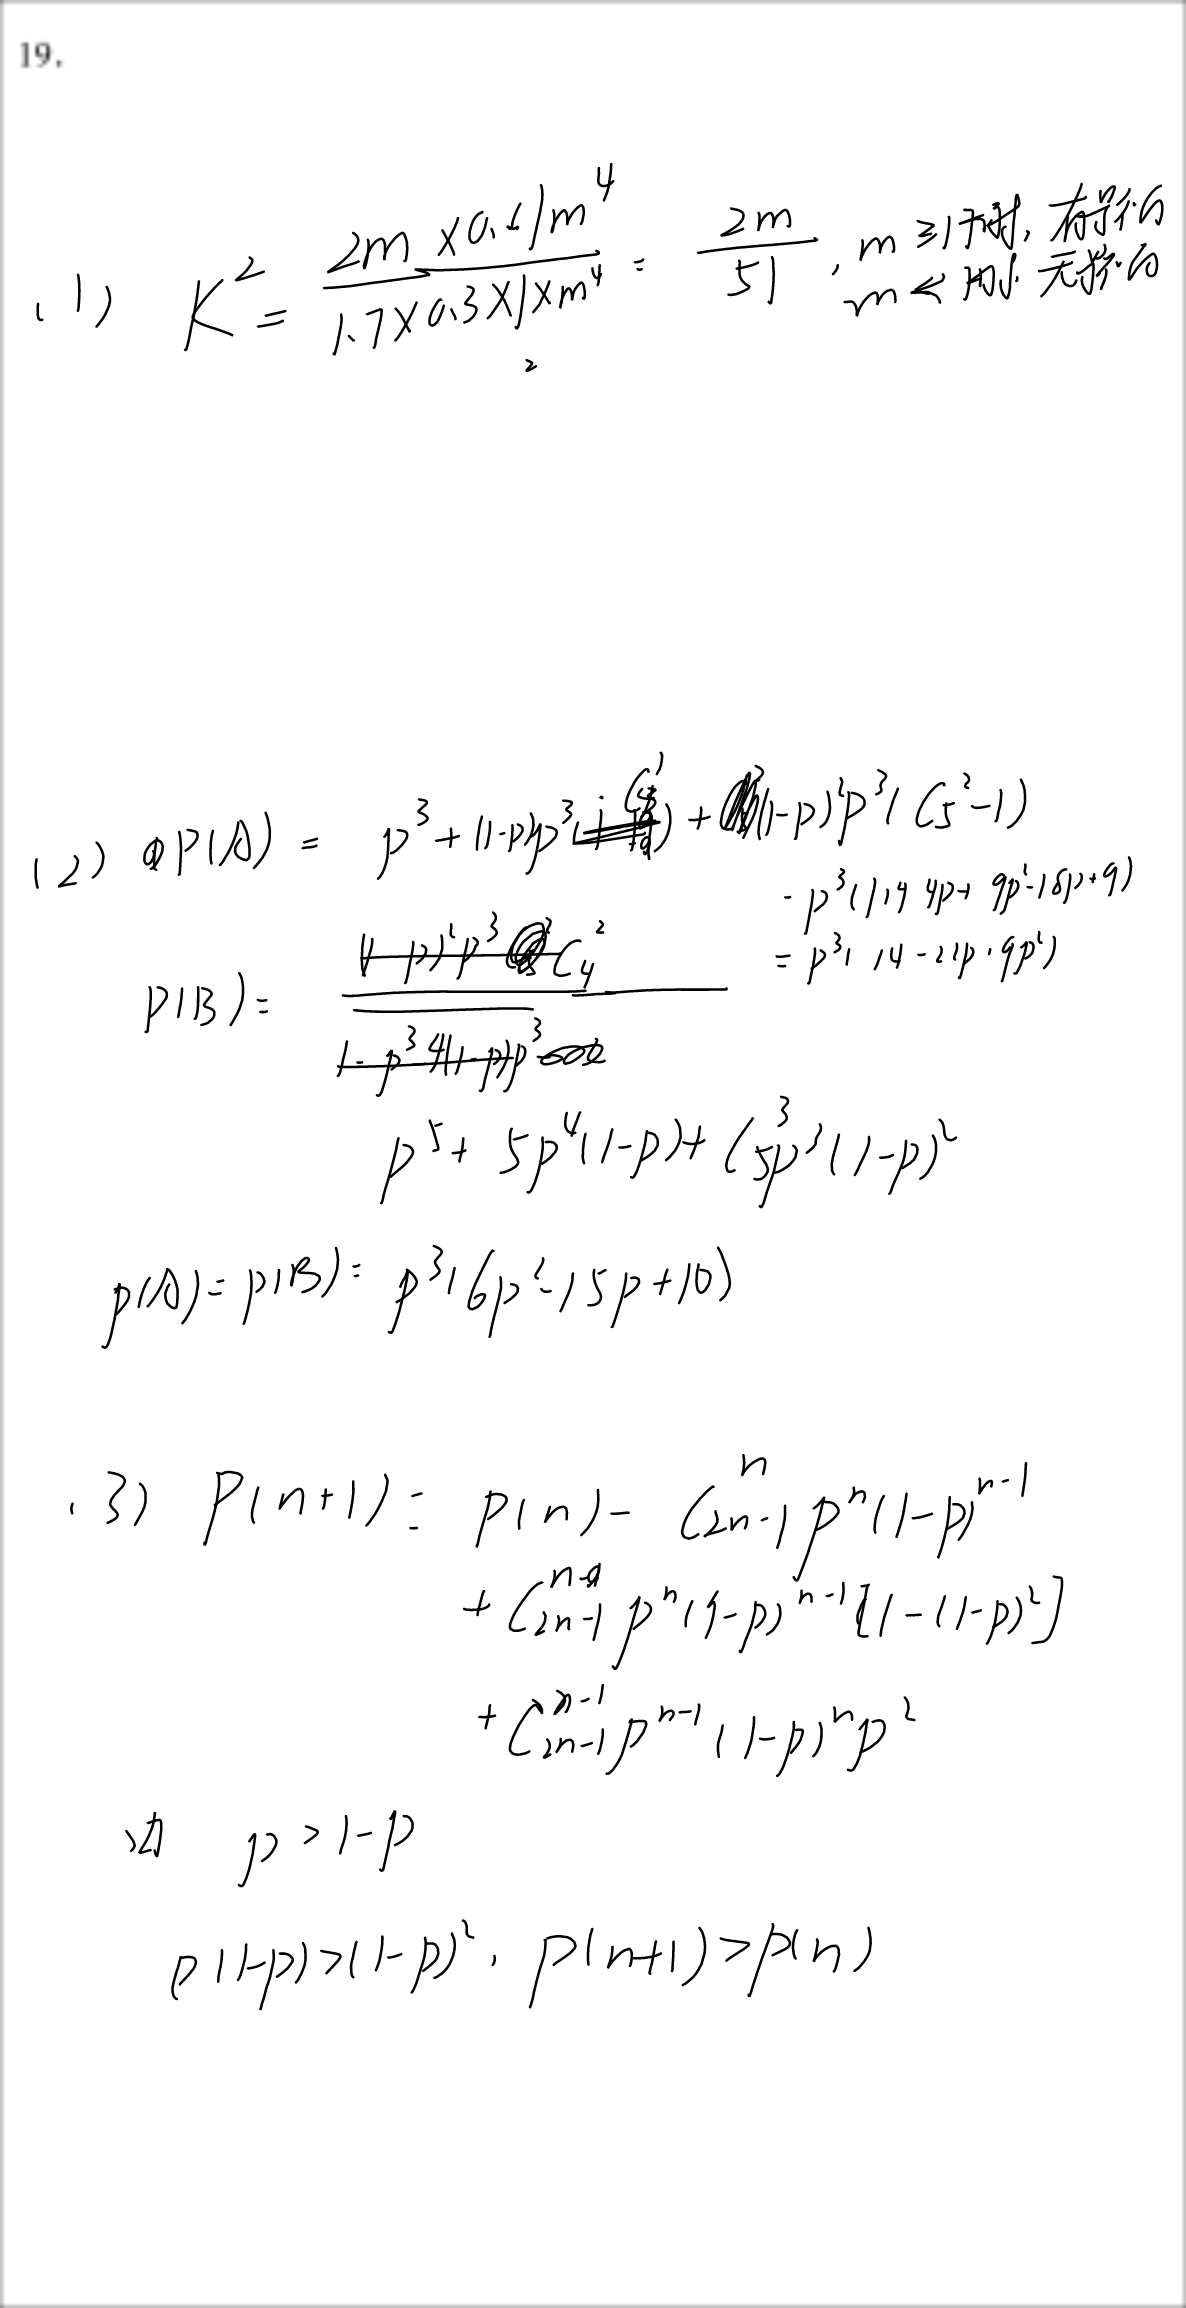 19.
(1) K² = 2m×0.61m⁴ / 1.7×0.3×1×m⁴ = 2m/51, m ≥ 时, 有影响
m < 时 无影响
2
(2) P(A) = p³+(1-p)p³ C₄¹ + (1-p)²p³(C₅²-1)
- p³(1+4-4p+9p²-18p+9)
= p³(14-22p+9p²)
P(B) = C₄²
p⁵+5p⁴(1-p)+C₅³p³(1-p)²
p(A)=p(B)= p³(6p²-15p+10)
(3) P(n+1) = p(n) - C₂ₙ₋₁ⁿ pⁿ(1-p)ⁿ⁻¹
+ C₂ₙ₋₁ pⁿ(1-p)ⁿ⁻¹[1-(1-p)²]
+ C₂ₙ₋₁ⁿ⁻¹ pⁿ⁻¹(1-p)ⁿp²
p > 1-p
p(1-p)>(1-p)², P(n+1)>p(n)